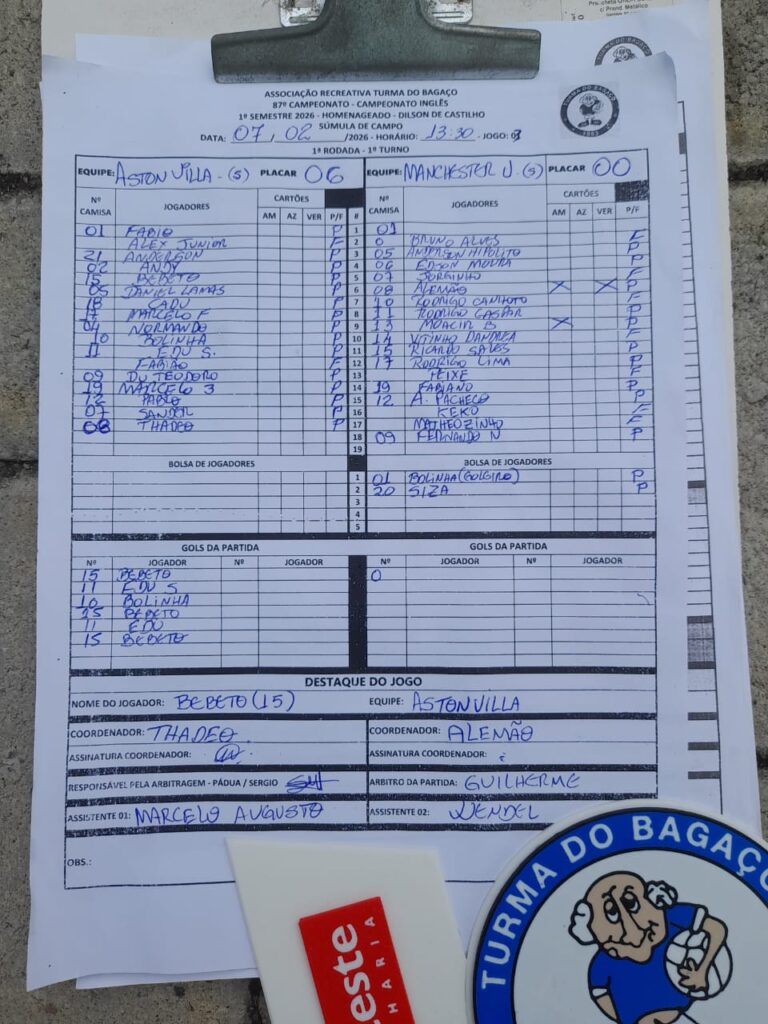 ASSOCIAÇÃO RECREATIVA TURMA DO BAGAÇO
87º CAMPEONATO - CAMPEONATO INGLÊS
1º SEMESTRE 2026 - HOMENAGEADO - DILSON DE CASTILHO
SÚMULA DE CAMPO
DATA: 07, 02 /2026 - HORÁRIO: 13:30 - JOGO: 03
1ª RODADA - 1º TURNO
EQUIPE: ASTON VILLA - (S) PLACAR 06 EQUIPE: MANCHESTER U. (S) PLACAR 00
Nº CAMISA JOGADORES CARTÕES AM AZ VER P/F # Nº CAMISA JOGADORES CARTÕES AM AZ VER P/F
01 FABIO P 1 01
ALEX JUNIOR F 2 0 BRUNO ALVES F
21 ANDERSON P 3 05 ANDERSON HIPOLITO P
02 ANDY P 4 06 EDSON MOURA P
15 BEBETO P 5 07 JORGINHO F
05 DANIEL LAMAS P 6 08 ALEMÃO X X P
18 CADU P 7 10 RODRIGO CANHOTO F
17 MARCELO F P 8 11 RODRIGO GASPAR P
04 NORMANDO P 9 13 MOACIR B X P
10 BOLINHA P 10 14 VITINHO DANDREA F
11 EDU S. P 11 15 RICARDO SALES P
FABIÃO F 12 17 RODRIGO LIMA P
09 DU TEODORO P 13 PEIXE F
19 MARCELO 3 P 14 19 FABIANO F
12 PABLO P 15 12 A. PACHECO P
07 SANDER P 16 KEKO F
08 THADEO P 17 MATHEOZINHO F
18 09 FERNANDO N P
19
BOLSA DE JOGADORES BOLSA DE JOGADORES
1 01 BOLINHA (GOLEIRO) P
2 20 SIZA P
3
4
5
GOLS DA PARTIDA GOLS DA PARTIDA
Nº JOGADOR Nº JOGADOR Nº JOGADOR Nº JOGADOR
15 BEBETO 0
11 EDU S
10 BOLINHA
15 BEBETO
11 EDU
15 BEBETO
DESTAQUE DO JOGO
NOME DO JOGADOR: BEBETO (15) EQUIPE: ASTON VILLA
COORDENADOR: THADEO. COORDENADOR: ALEMÃO
ASSINATURA COORDENADOR: ASSINATURA COORDENADOR:
RESPONSÁVEL PELA ARBITRAGEM - PÁDUA / SERGIO ARBITRO DA PARTIDA: GUILHERME
ASSISTENTE 01: MARCELO AUGUSTO ASSISTENTE 02: WENDEL
OBS.:
TURMA DO BAGAÇO
este
HARIA